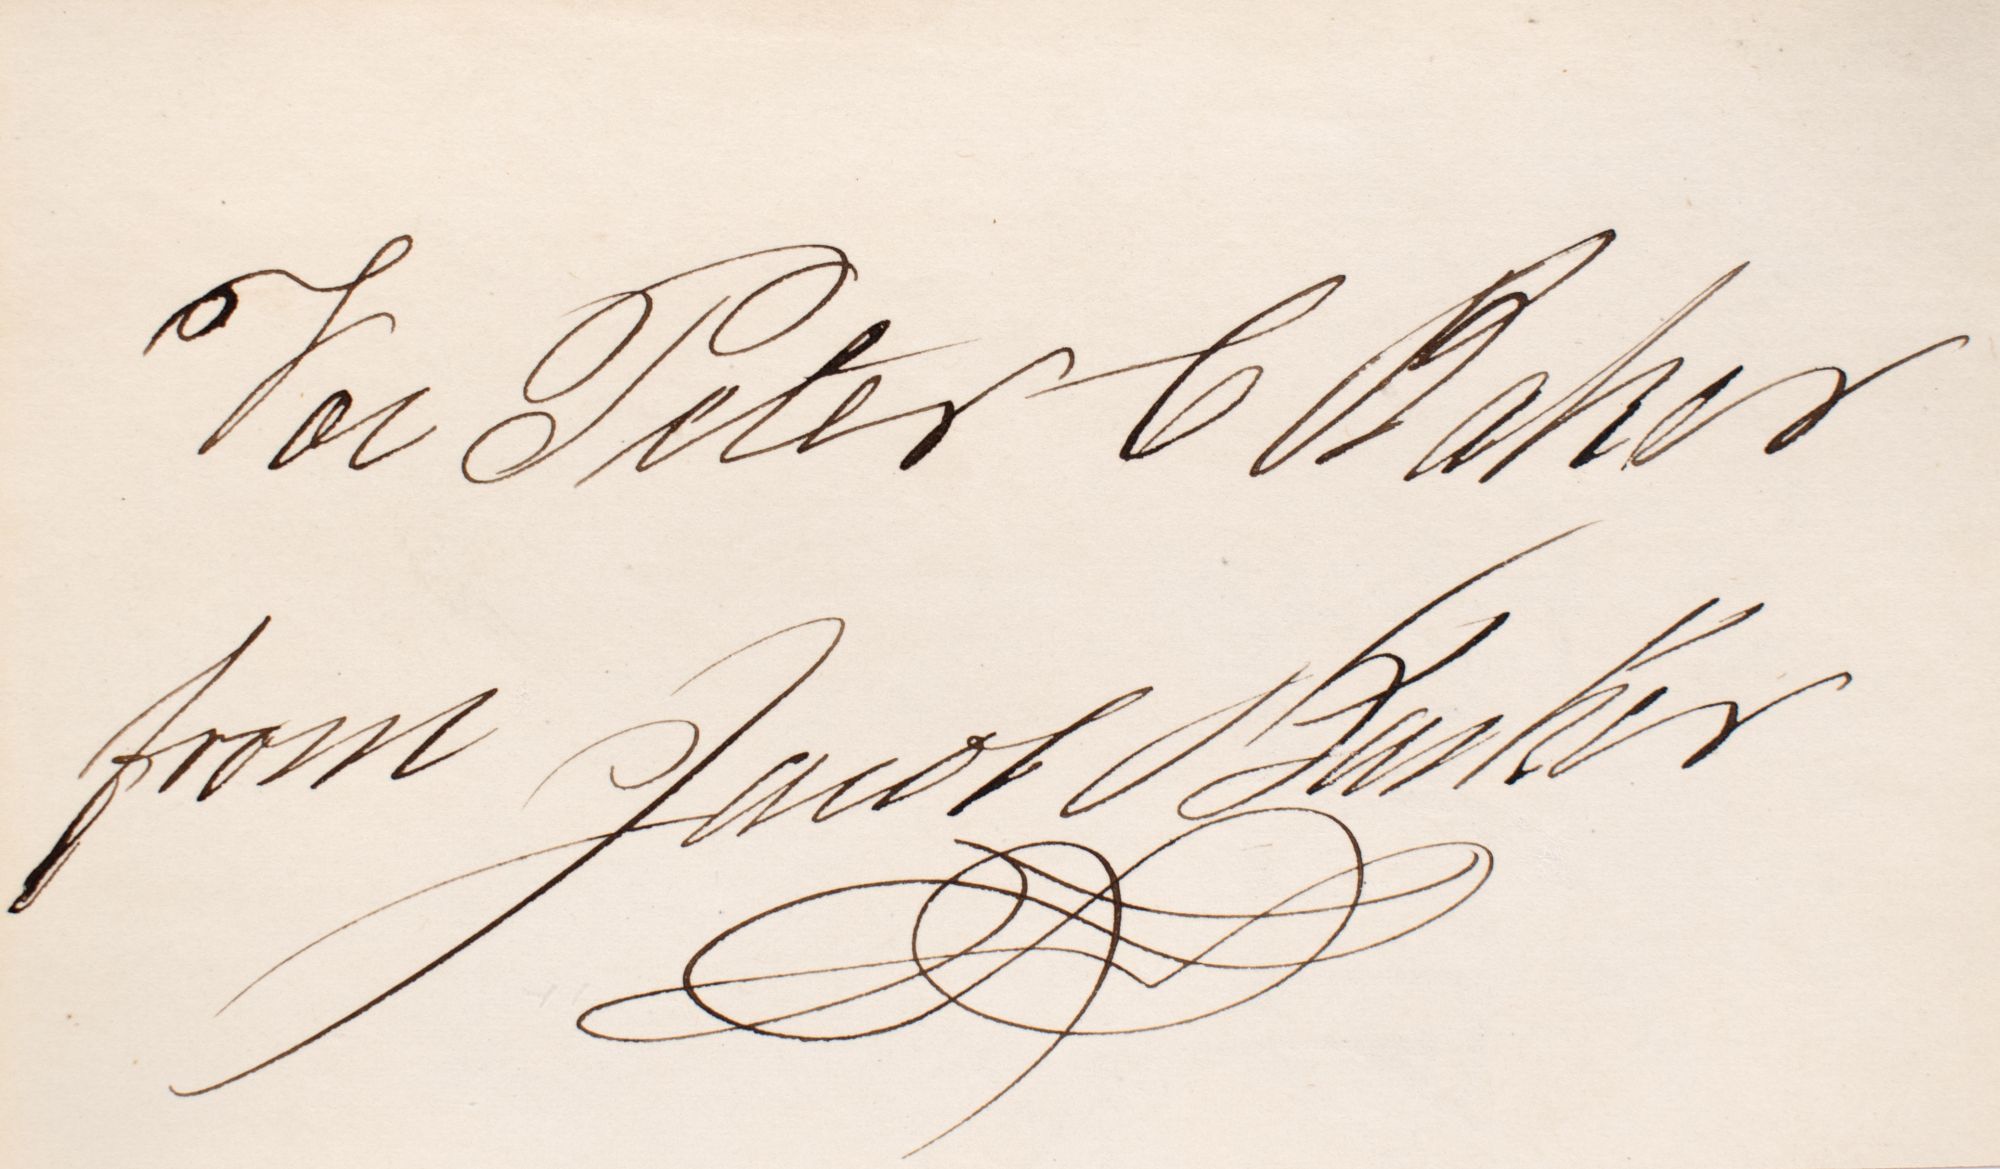 For Peter C Baker
from Jacob Barker